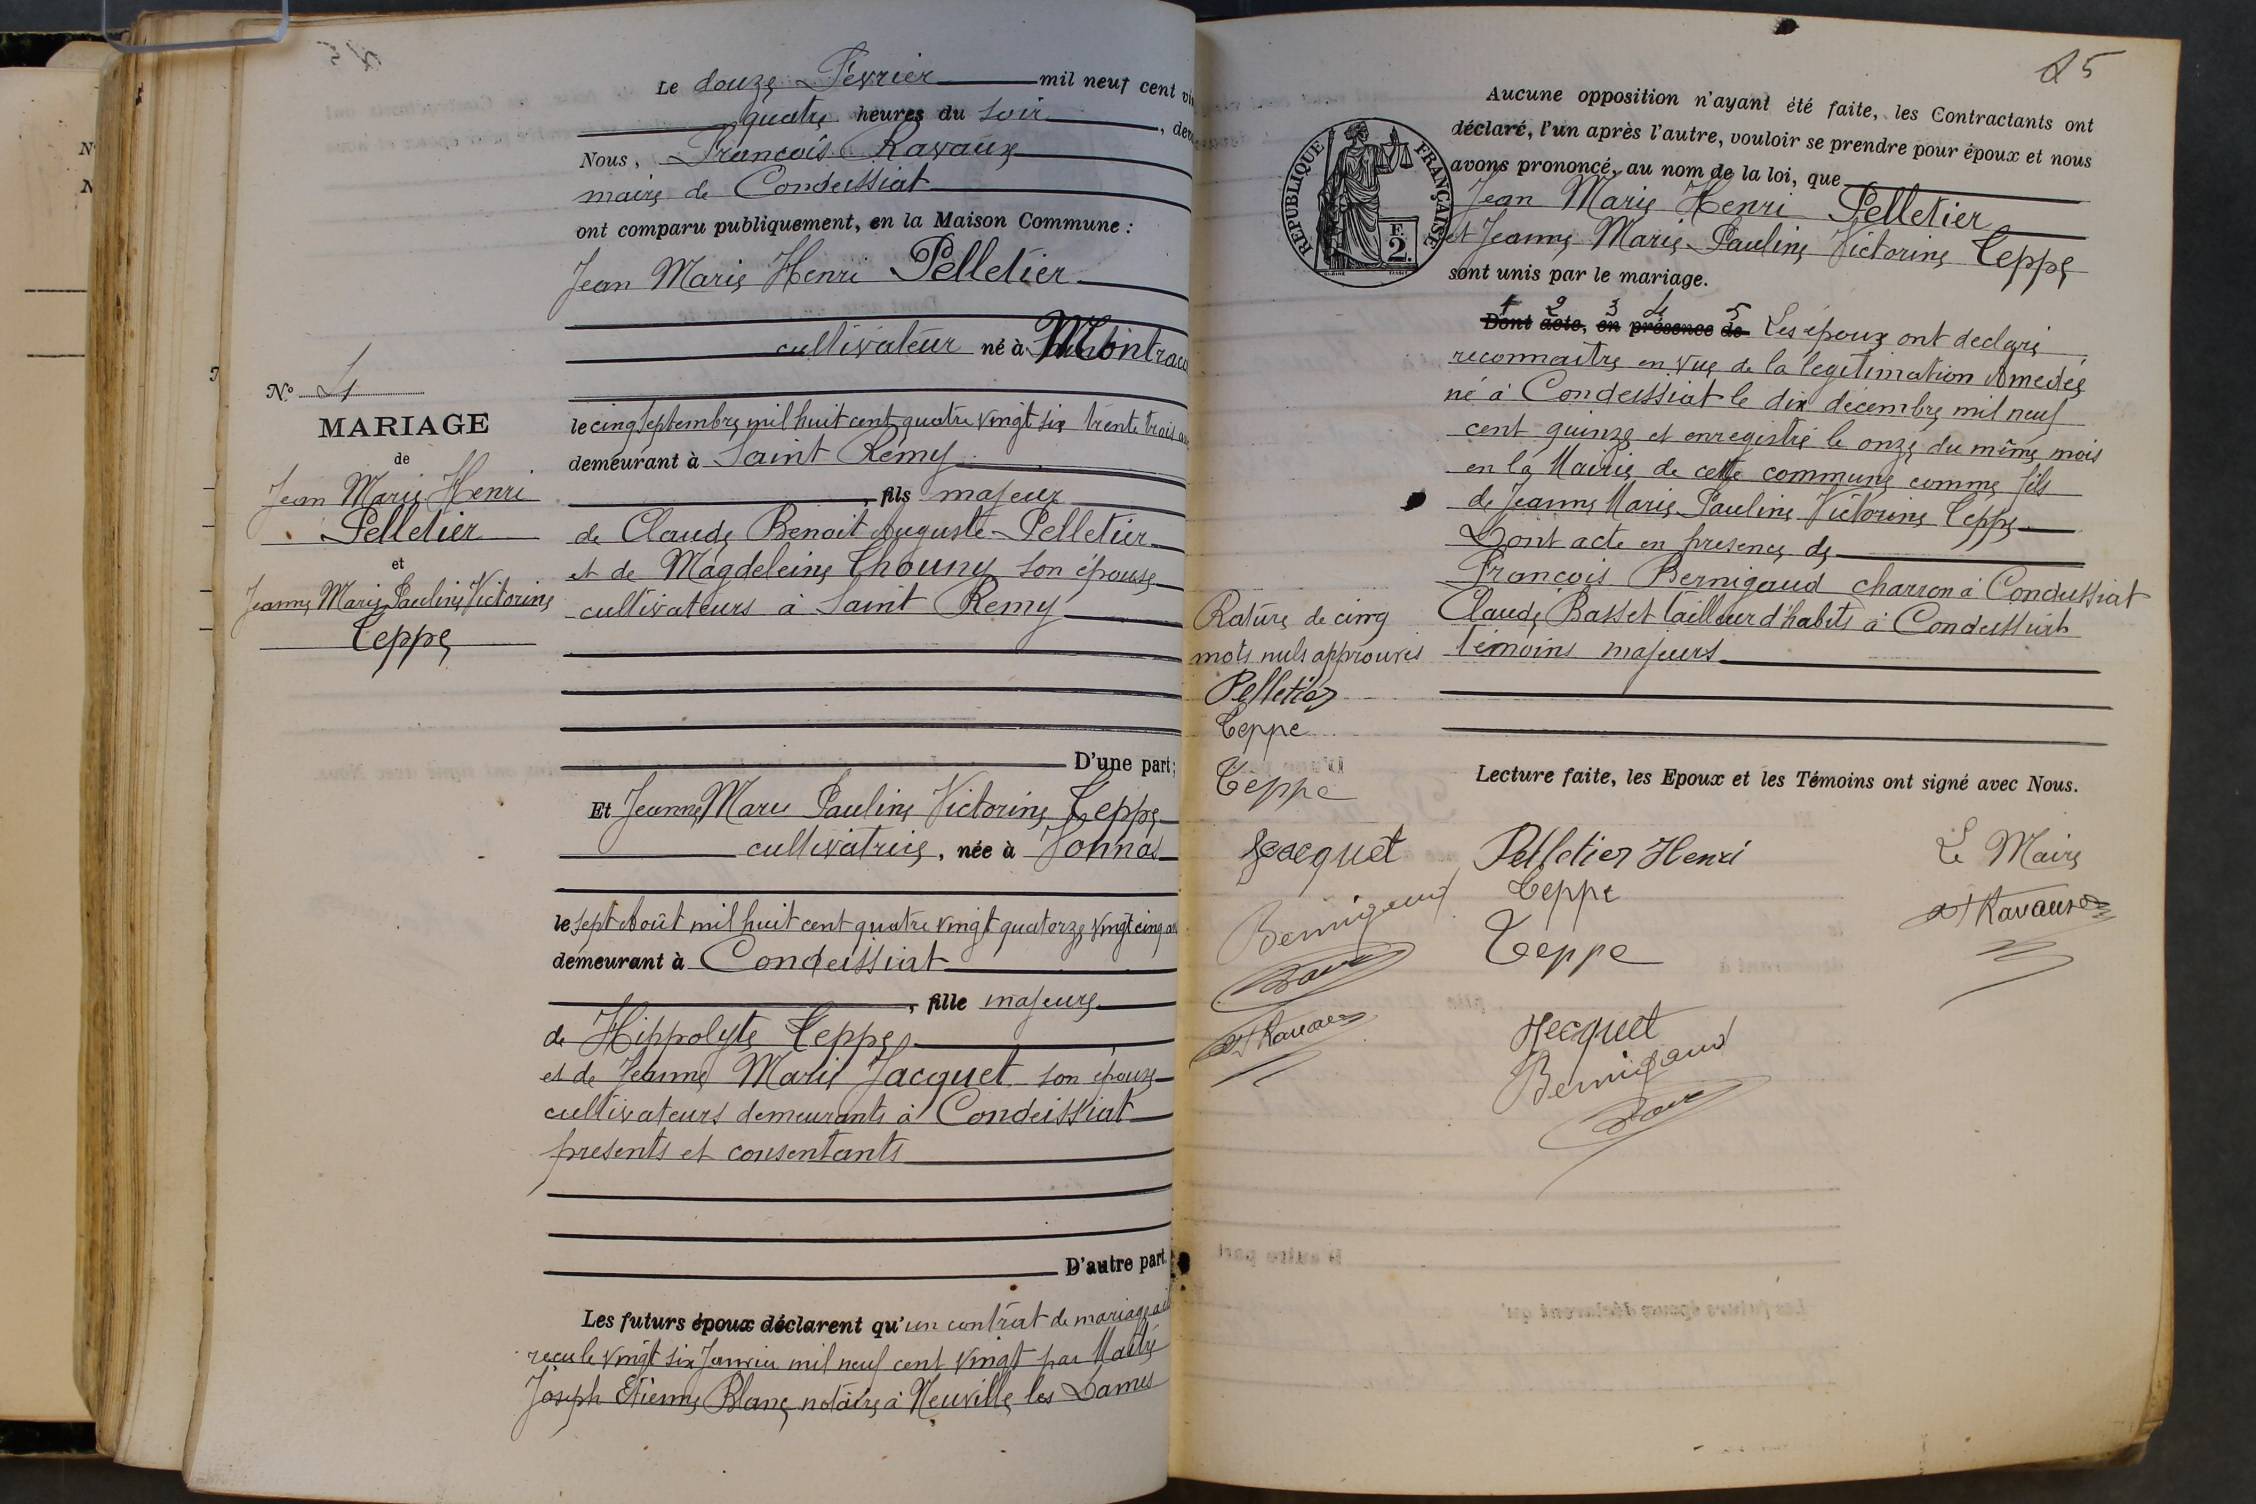 Le douze Février mil neuf cent vi
quatre heures du soir, deva
Nous, François Ravaux
maire de Condeissiat
ont comparu publiquement, en la Maison Commune :
Jean Marie Henri Pelletier
cultivateur né à Montrac
N° 4
MARIAGE
de
Jean Marie Henri
Pelletier
et
Jeanne Marie Pauline Victorine
Teppe
le cinq septembre mil huit cent quatre vingt six trente trois an
demeurant à Saint Rémy
, fils majeur
de Claude Benoit Auguste Pelletier
et de Magdeleine Chouny son épouse
cultivateurs à Saint Remy
D'une part;
Et Jeanne Marie Pauline Victorine Teppe
cultivatrice, née à Jonnas
le sept Août mil huit cent quatre vingt quatorze vingt cinq an
demeurant à Condeissiat
, fille majeure
de Hippolyte Teppe
et de Jeanne Marie Jacquet son épouse
cultivateurs demeurants à Condeissiat
presents et consentants
D'autre part.
Les futurs époux déclarent qu'un contrat de mariage a été
reçu le vingt six Janvier mil neuf cent vingt par Maitre
Joseph Etienne Blanc notaire à Neuville les Dames
25
RÉPUBLIQUE FRANÇAISE
F.
2.
Aucune opposition n'ayant été faite, les Contractants ont
déclaré, l'un après l'autre, vouloir se prendre pour époux et nous
avons prononcé, au nom de la loi, que
Jean Marie Henri Pelletier
et Jeanne Marie Pauline Victorine Teppe
sont unis par le mariage.
1 2 3 4 5
Dont acte, en présence de Les époux ont declaré
reconnaitre en vue de la legitimation Amedée
né à Condeissiat le dix décembre mil neuf
cent quinze et enregistré le onze du même mois
en la Mairie de cette commune comme fils
de Jeanne Marie Pauline Victorine Teppe
Dont acte en presence de
François Bernigaud charron à Condeissiat
Claude Basset tailleur d'habits à Condeissiat
témoins majeurs
Rature de cinq
mots nuls approuvés
Pelletier
Teppe
Teppe
Jacquet
Bernigaud
Ravaux
Lecture faite, les Epoux et les Témoins ont signé avec Nous.
Pelletier Henri
Teppe
Teppe
Jacquet
Bernigaud
Le Maire
Ravaux